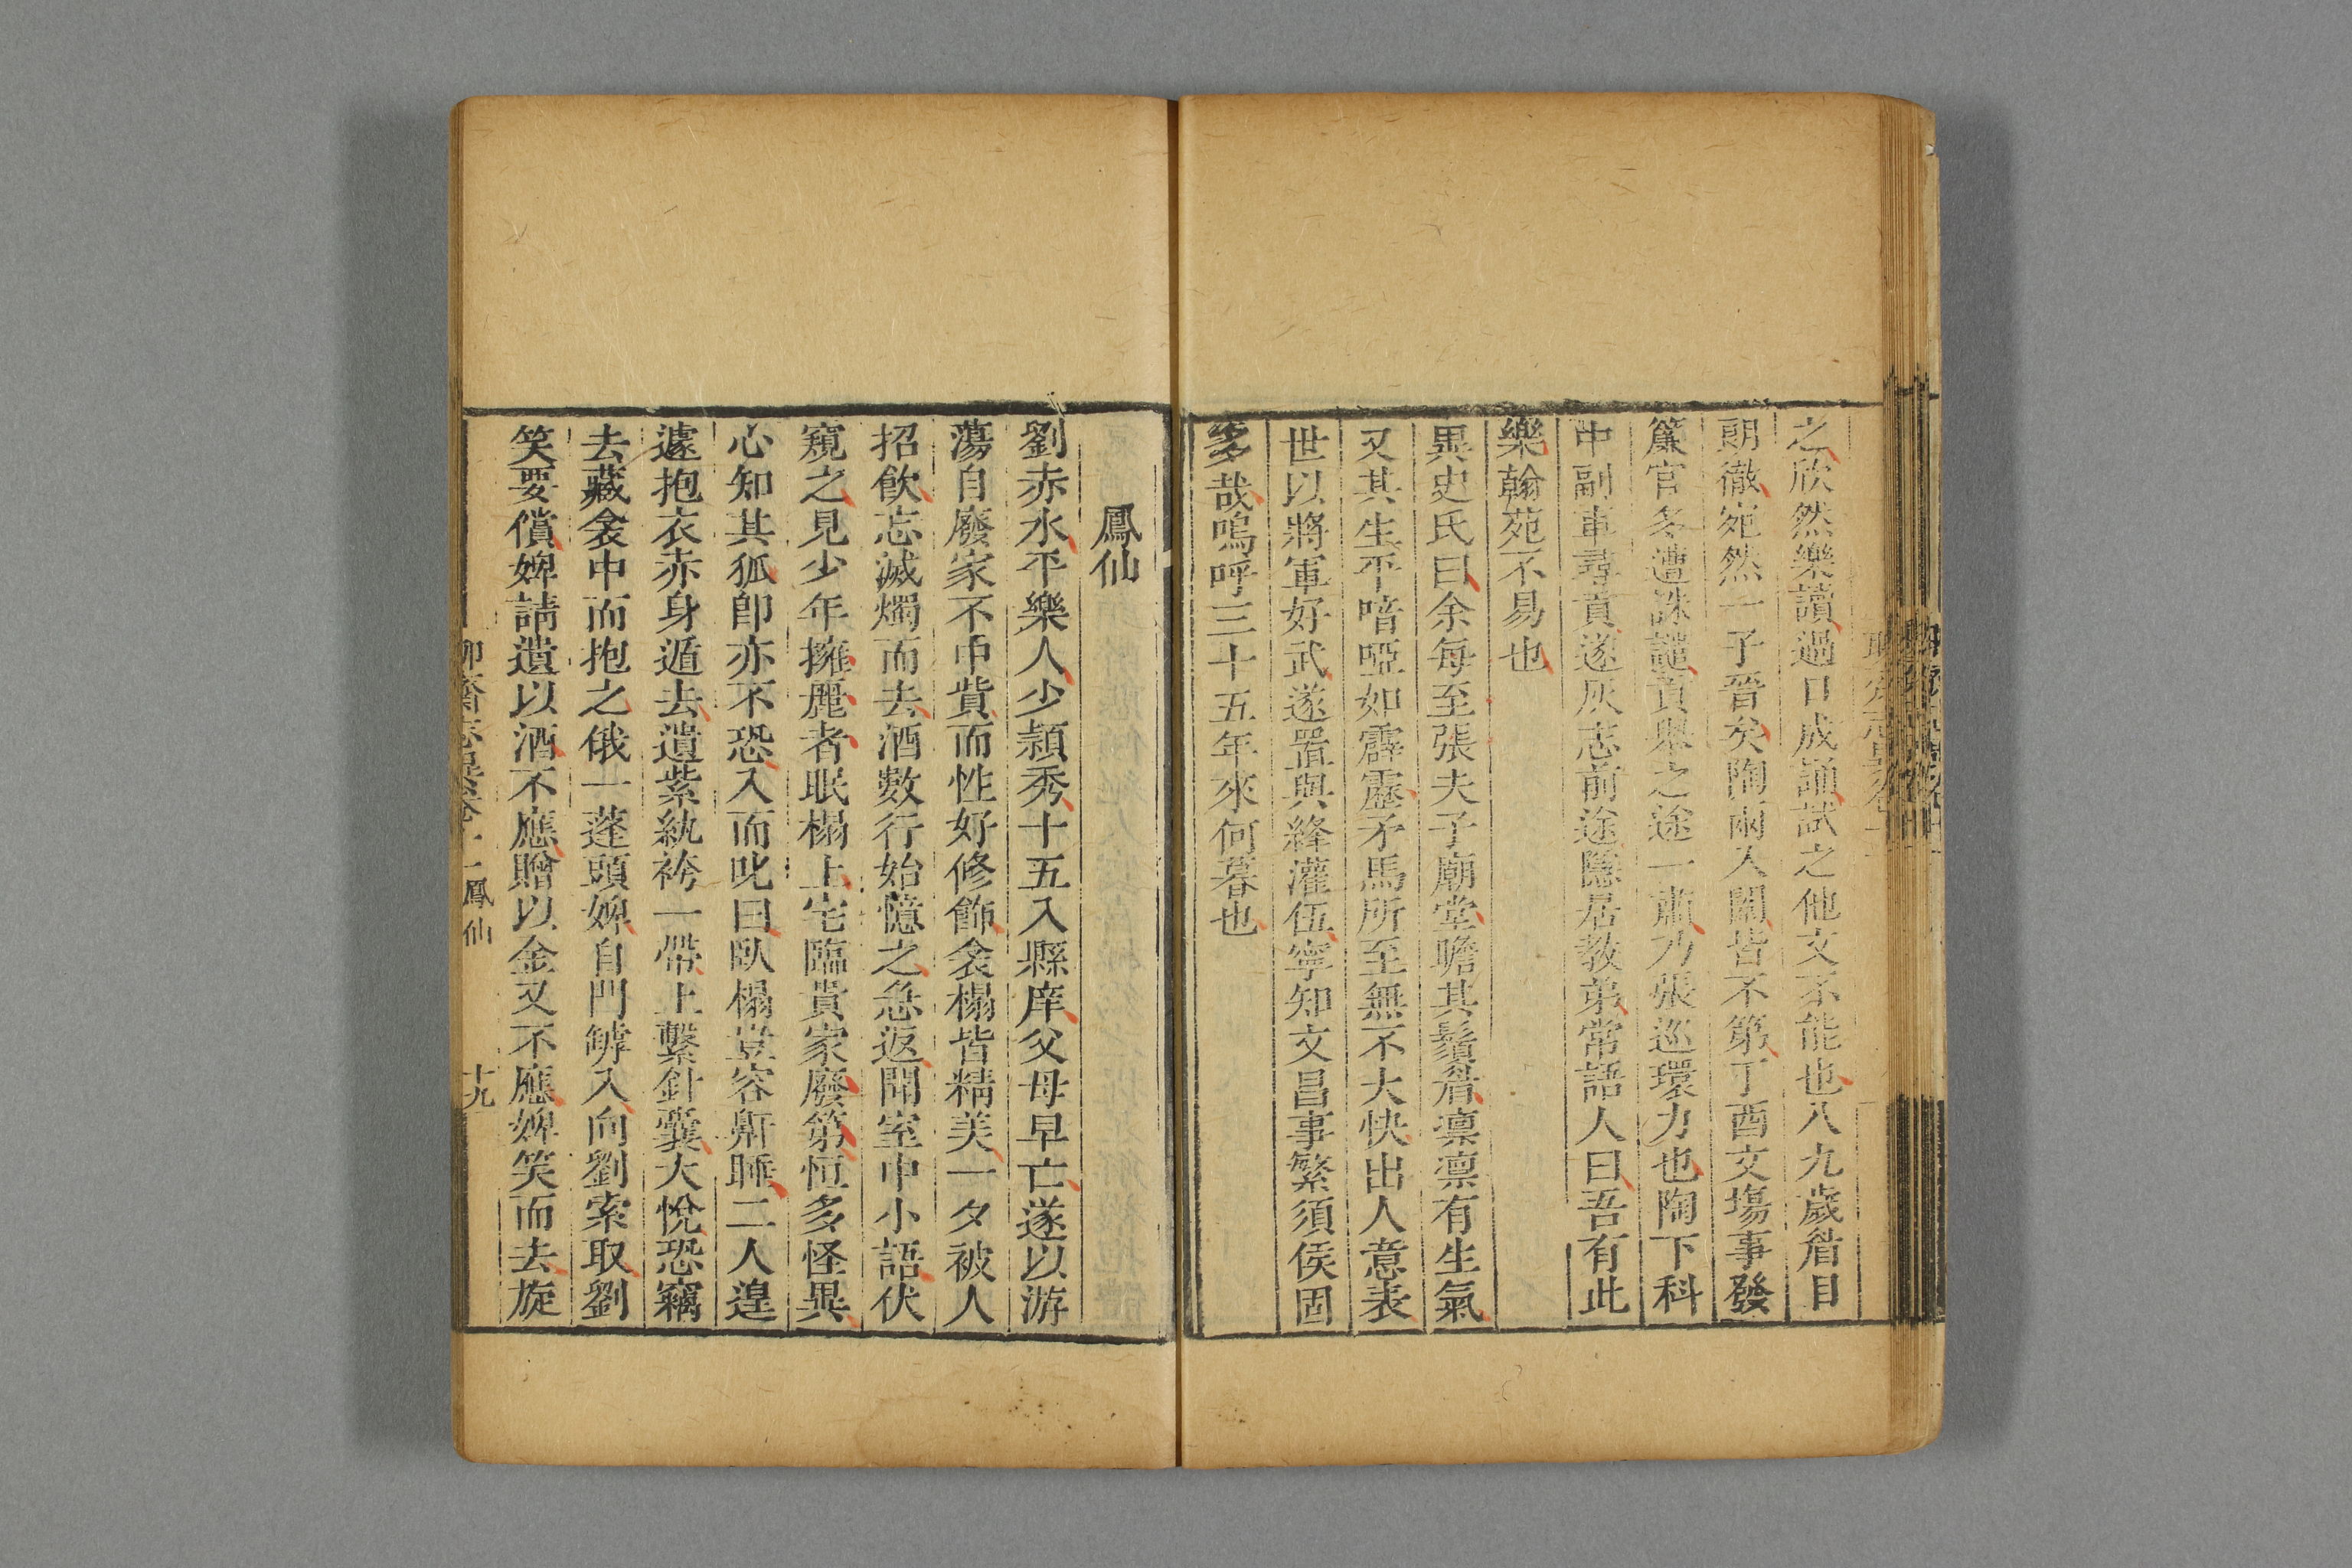 之欣然樂讀過口成誦試之他文不能也八九歲眉目
朗徹宛然一子晉矣陶兩入闈皆不第丁酉文塲事發
簾官多遭誅譴貢舉之途一肅乃張巡環力也陶下科
中副車尋貢遂灰志前途隱居教弟常語人曰吾有此
樂翰苑不易也
異史氏曰余每至張夫子廟堂瞻其鬚眉凛凛有生氣
又其生平喑啞如霹靂矛馬所至無不大快出人意表
世以將軍好武遂置與絳灌伍寧知文昌事繁須侯固
多哉嗚呼三十五年來何暮也
鳳仙
劉赤水平樂人少頴秀十五入縣庠父母早亡遂以游
蕩自廢家不中貲而性好修飾衾榻皆精美一夕被人
招飲忘滅燭而去酒數行始憶之急返聞室中小語伏
窺之見少年擁麗者眠榻上宅臨貴家廢第恒多怪異
心知其狐卽亦不恐入而叱曰臥榻豈容鼾睡二人遑
遽抱衣赤身遁去遺紫紈袴一帶上繫針囊大悅恐竊
去藏衾中而抱之俄一蓬頭婢自門罅入向劉索取劉
笑要償婢請遺以酒不應贈以金又不應婢笑而去旋
聊齋志異卷十一鳳仙 十九